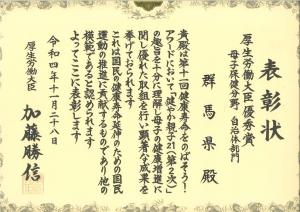 表彰状
厚生労働大臣 優秀賞
母子保健分野 自治体部門
群馬県 殿
貴殿は第十一回健康寿命をのばそう!
アワードにおいて「健やか親子21(第2次)」
の趣旨を十分に理解し母子の健康増進に
関し優れた取組を行い顕著な成果を
挙げておられます
これは国民の健康寿命延伸のための国民
運動の推進に貢献するものであり他の
模範であると認められます
よってここに表彰します
令和四年十一月二十八日
厚生労働大臣 加藤勝信